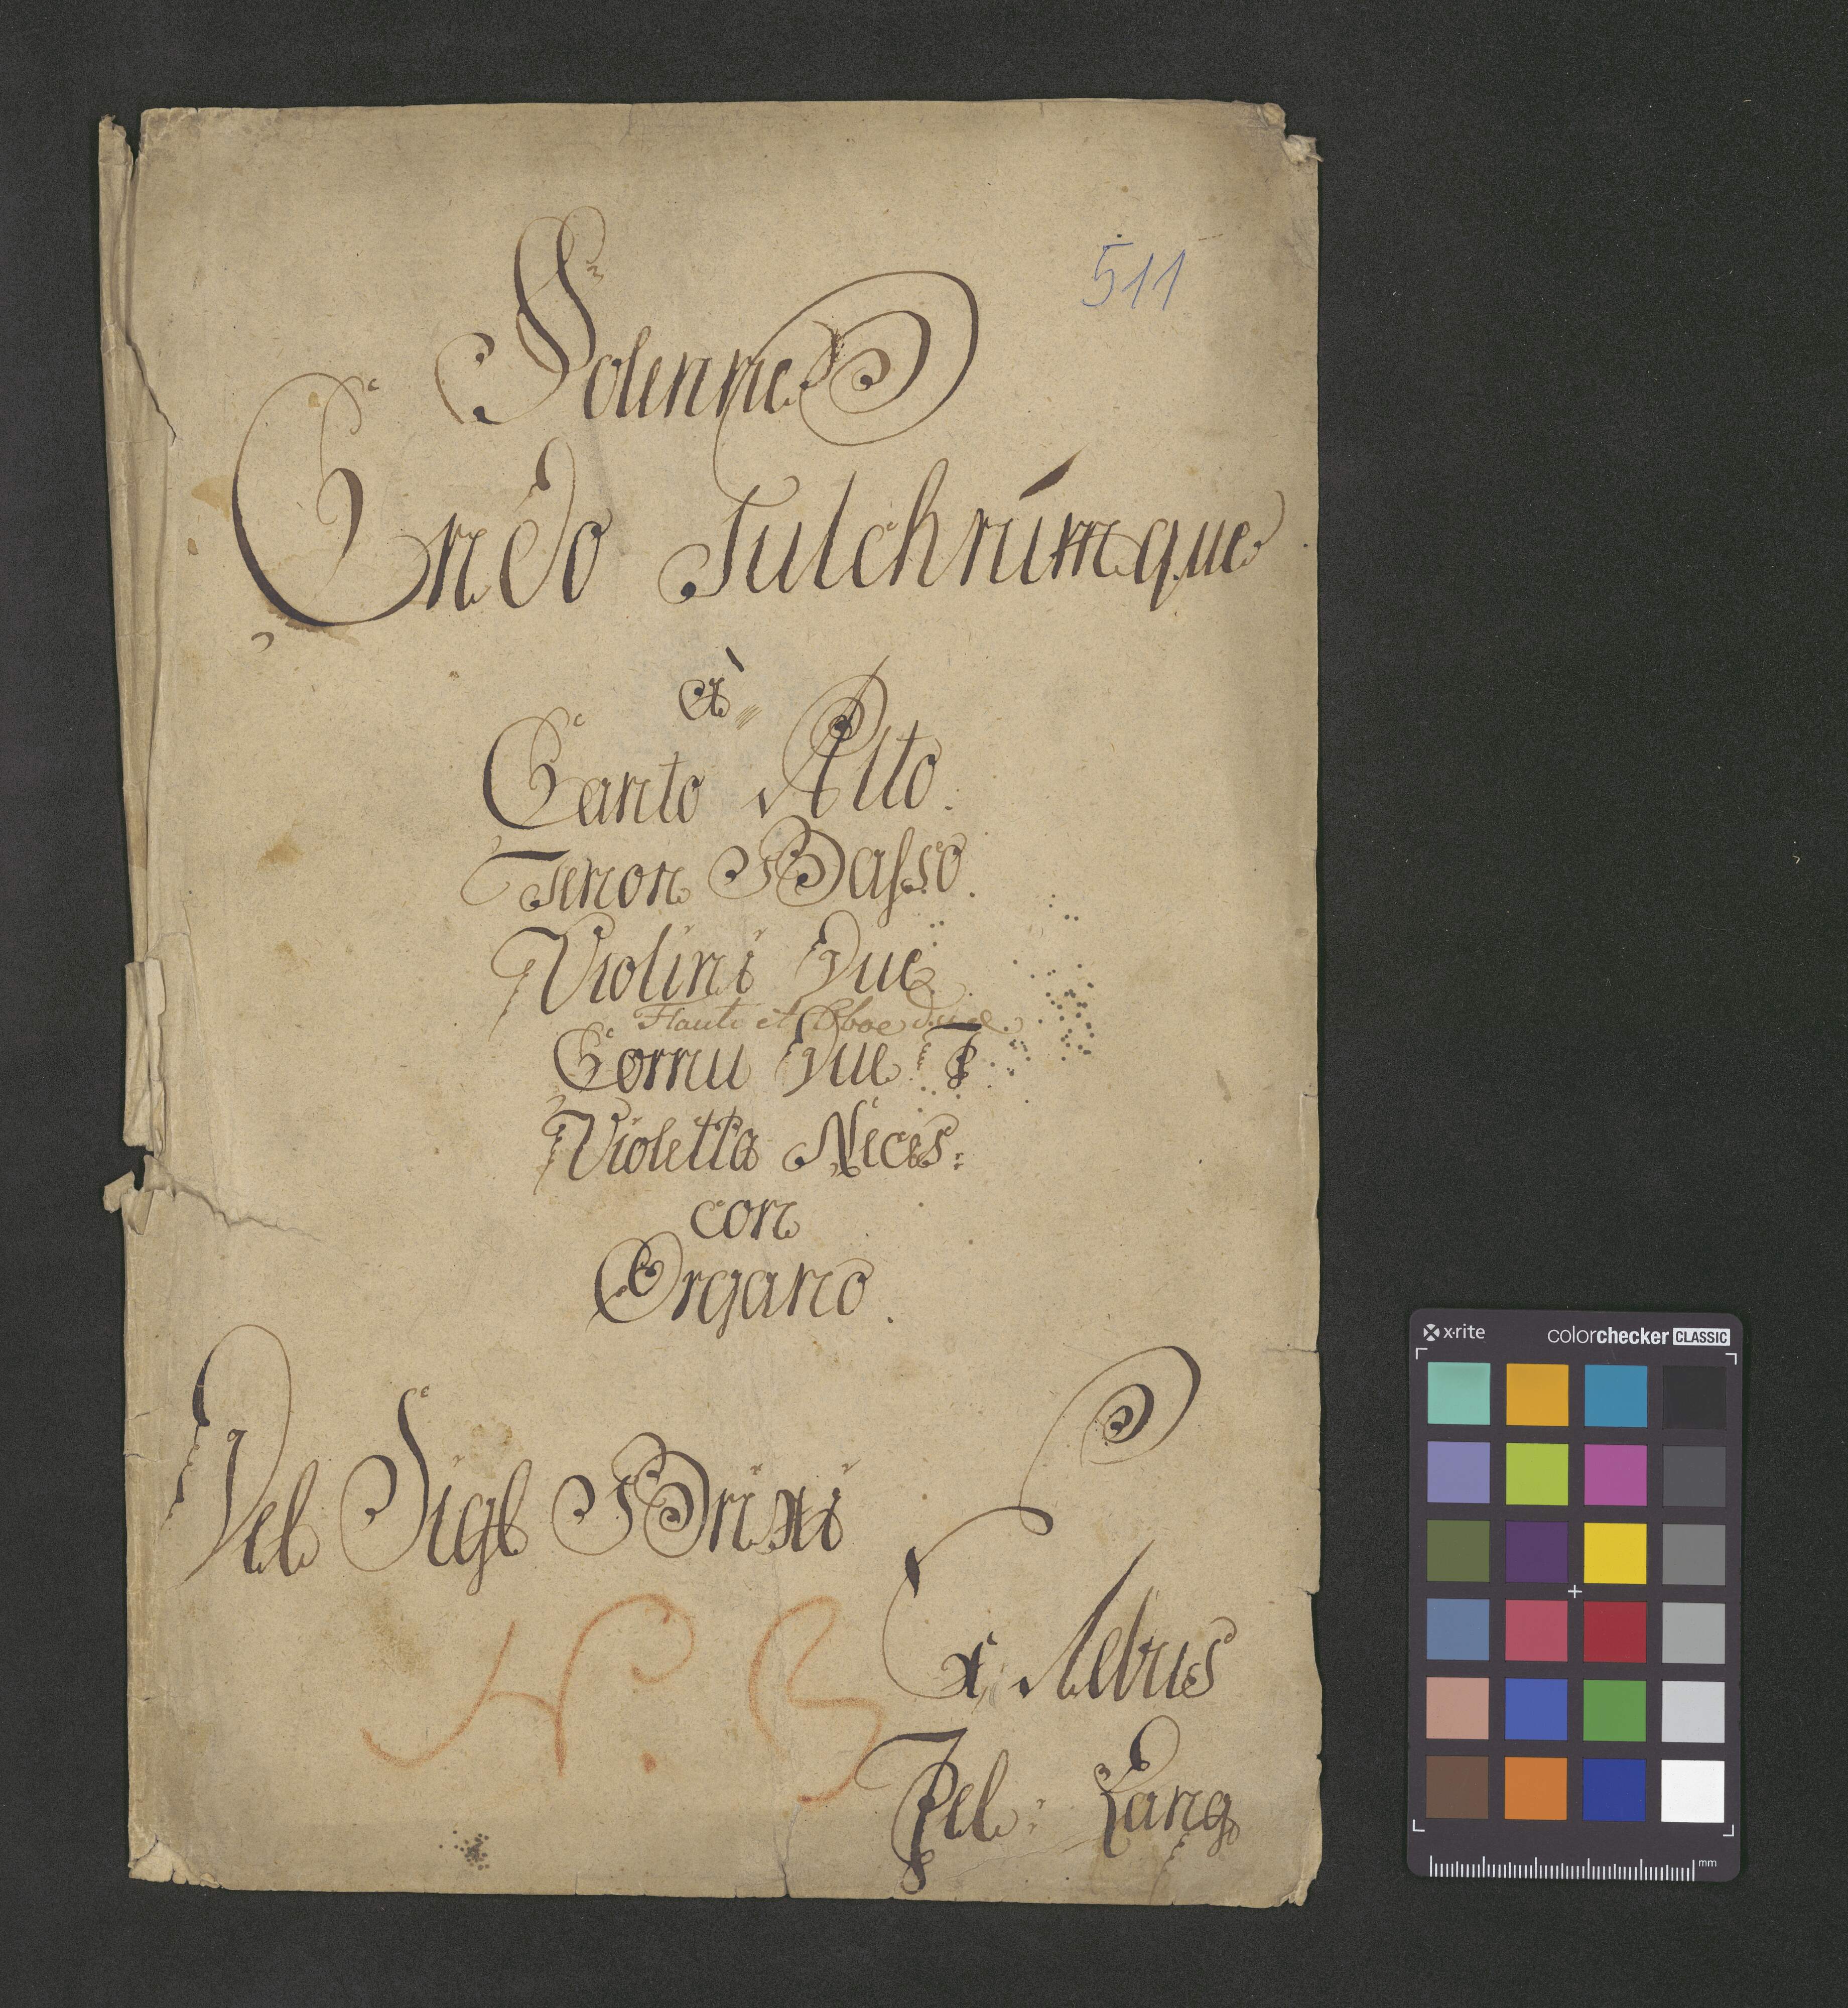 511
Solenne
Credo Pulchrúmque
à
Canto Alto.
Tenore Basso.
Violini Due
Flauti et Oboe due.
Cornu Due F
Violetta Neces:
con
Organo.
Del Sigl Brixi
N. B
Ex Rebus
Fel: Lang
x·rite
colorchecker CLASSIC
mm